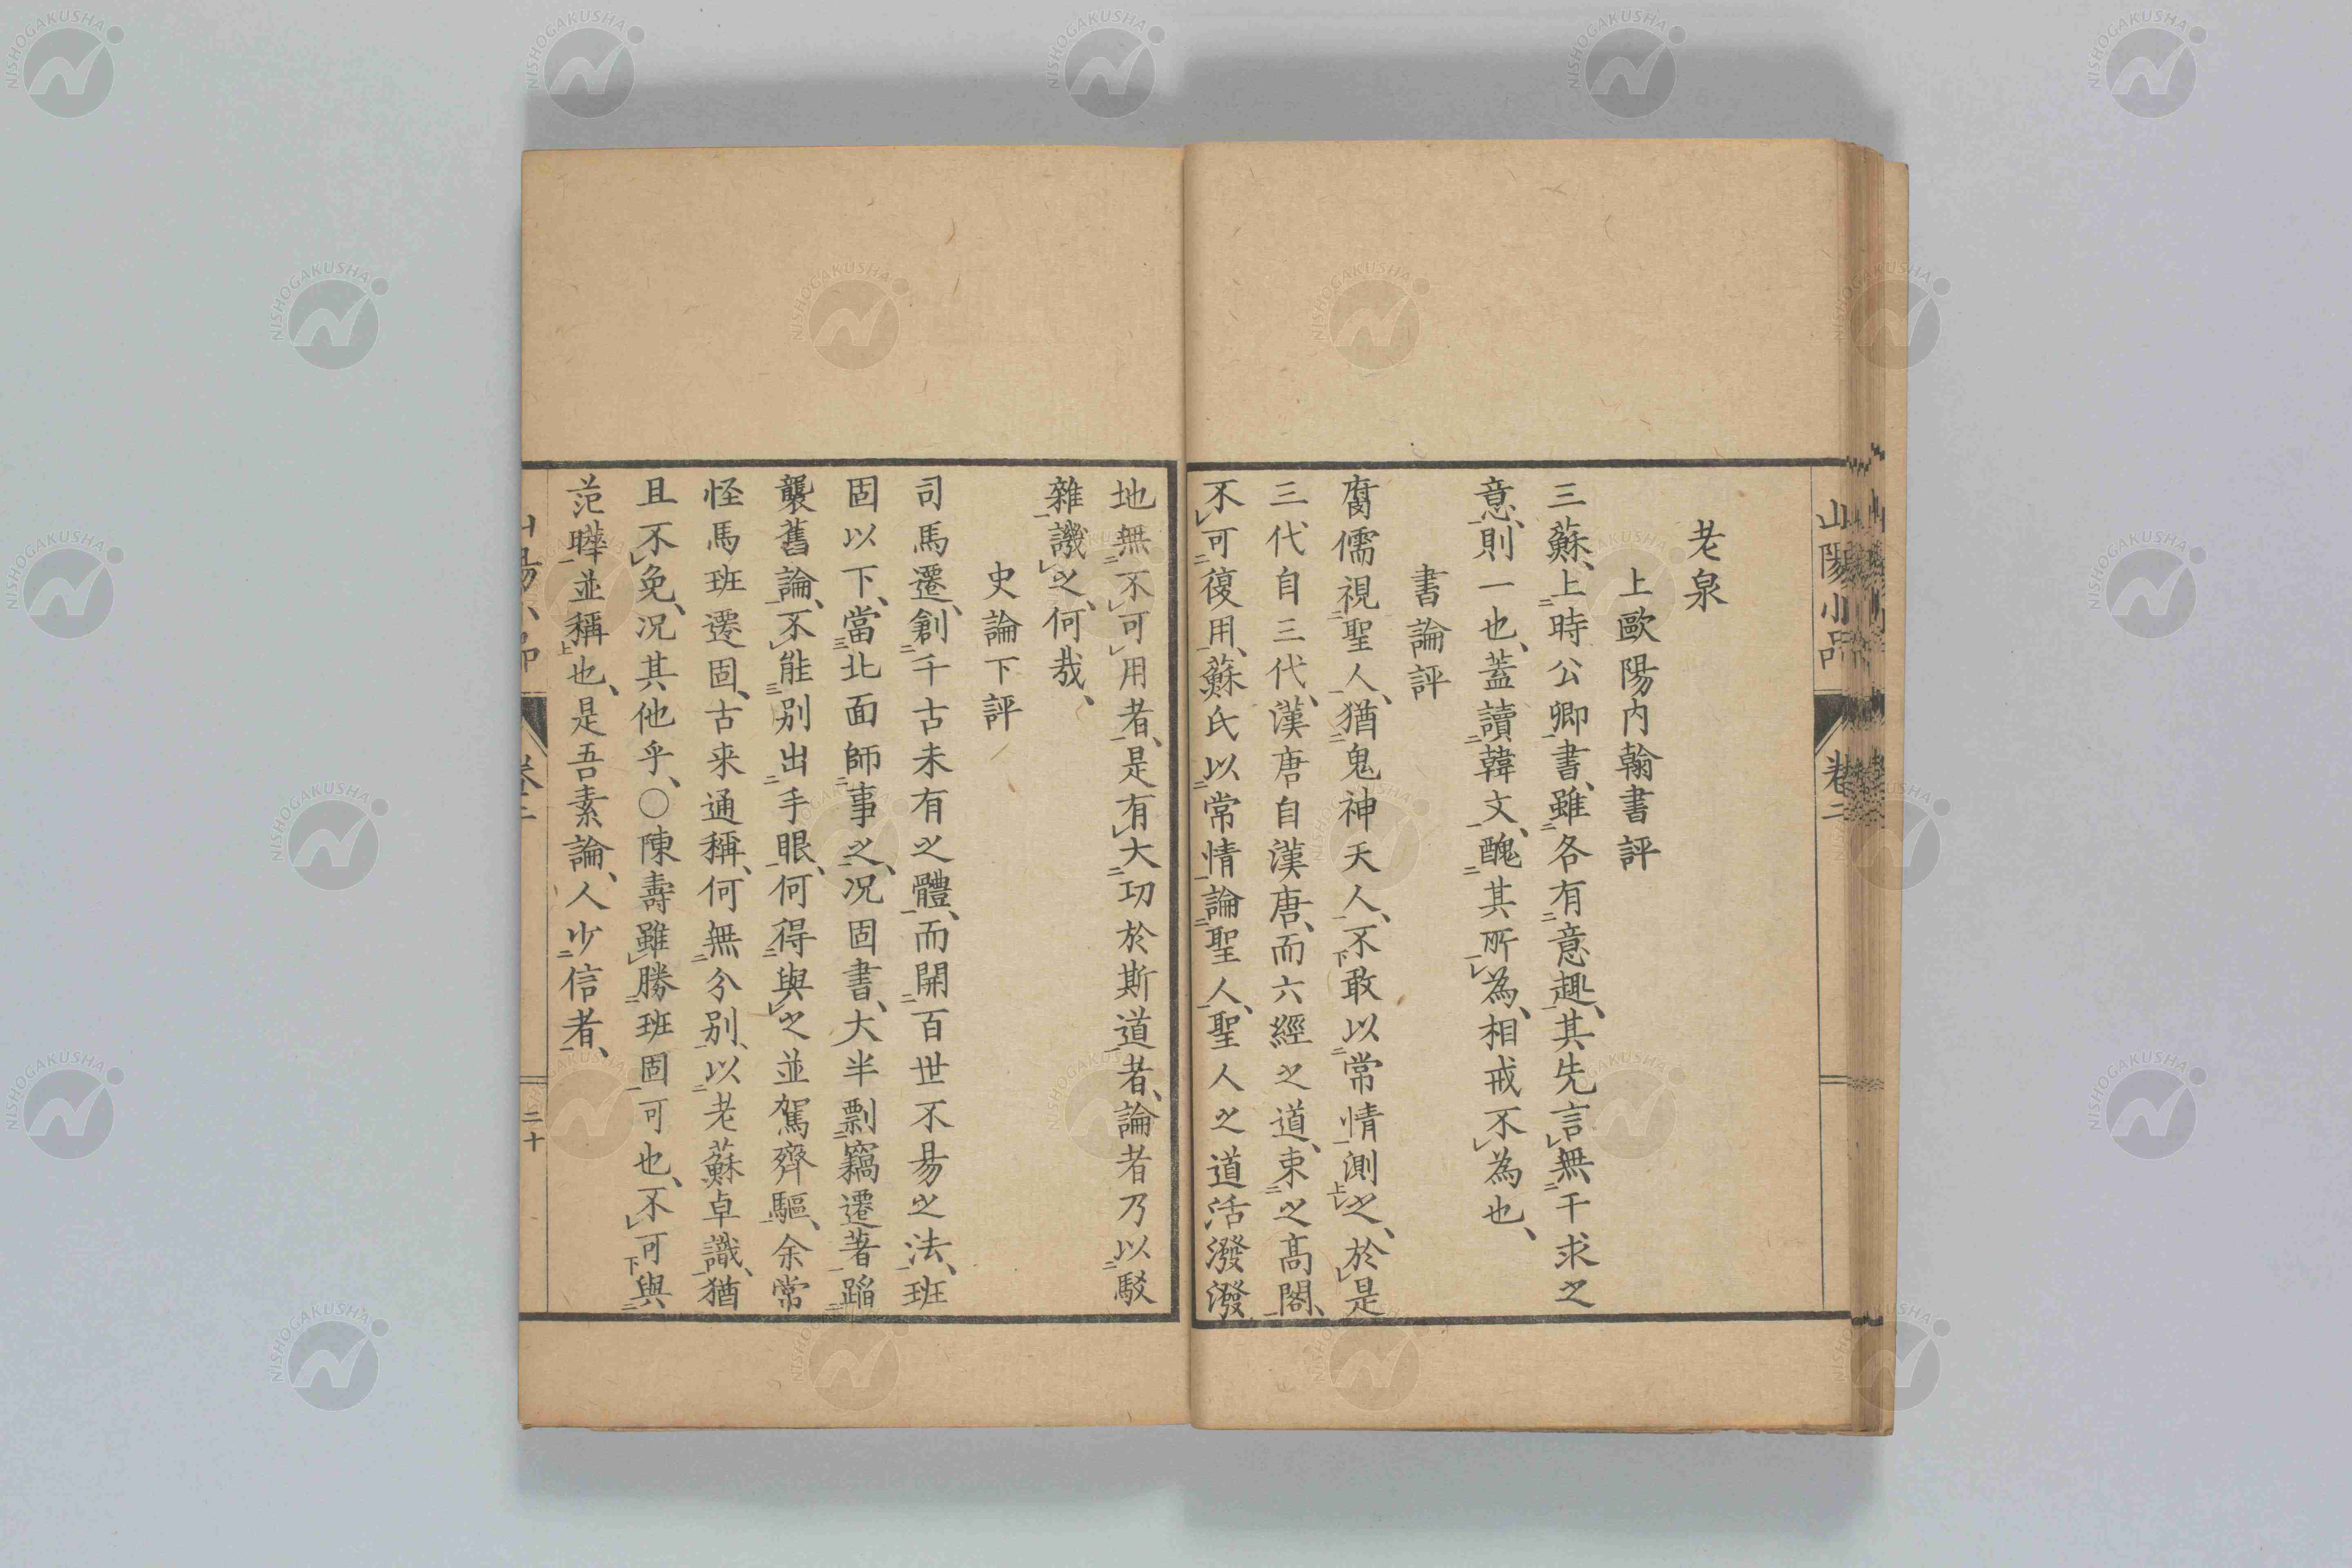 山陽小品 卷二
老泉
上歐陽内翰書評
三蘇、上時公卿書、雖各有意趣、其先言無干求之
意、則一也、蓋讀韓文、醜其所為、相戒不為也、
書論評
腐儒視聖人、猶鬼神天人、不敢以常情測之、於是
三代自三代、漢唐自漢唐、而六經之道、束之高閣、
不可復用、蘇氏以常情論聖人、聖人之道活潑潑
地無不可用者、是有大功於斯道者、論者乃以駁
雜譏之、何哉、
史論下評
司馬遷、創千古未有之體、而開百世不易之法、班
固以下、當北面師事之、况固書、大半剽竊遷著、蹈
襲舊論、不能別出手眼、何得與之並駕齊驅、余常
怪馬班遷固、古来通稱、何無分別、以老蘇卓識、猶
且不免、况其他乎、〇陳壽雖勝班固可也、不可與
范曄並稱也、是吾素論、人少信者、
二十
NISHOGAKUSHA